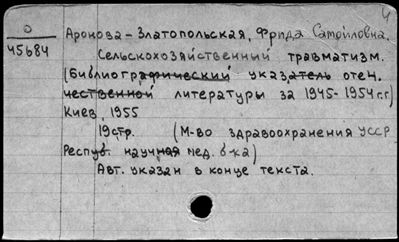 4
0
45684
Аронова-Златопольская, Фрида Самойловна.
Сельскохозяйственный травматизм.
(Библиографический указатель отеч.
чественной литературы за 1945-1954 г.г)
Киев, 1955
19стр. (М-во здравоохранения УССР
Респуб. научная мед. б-ка)
Авт. указан в конце текста.